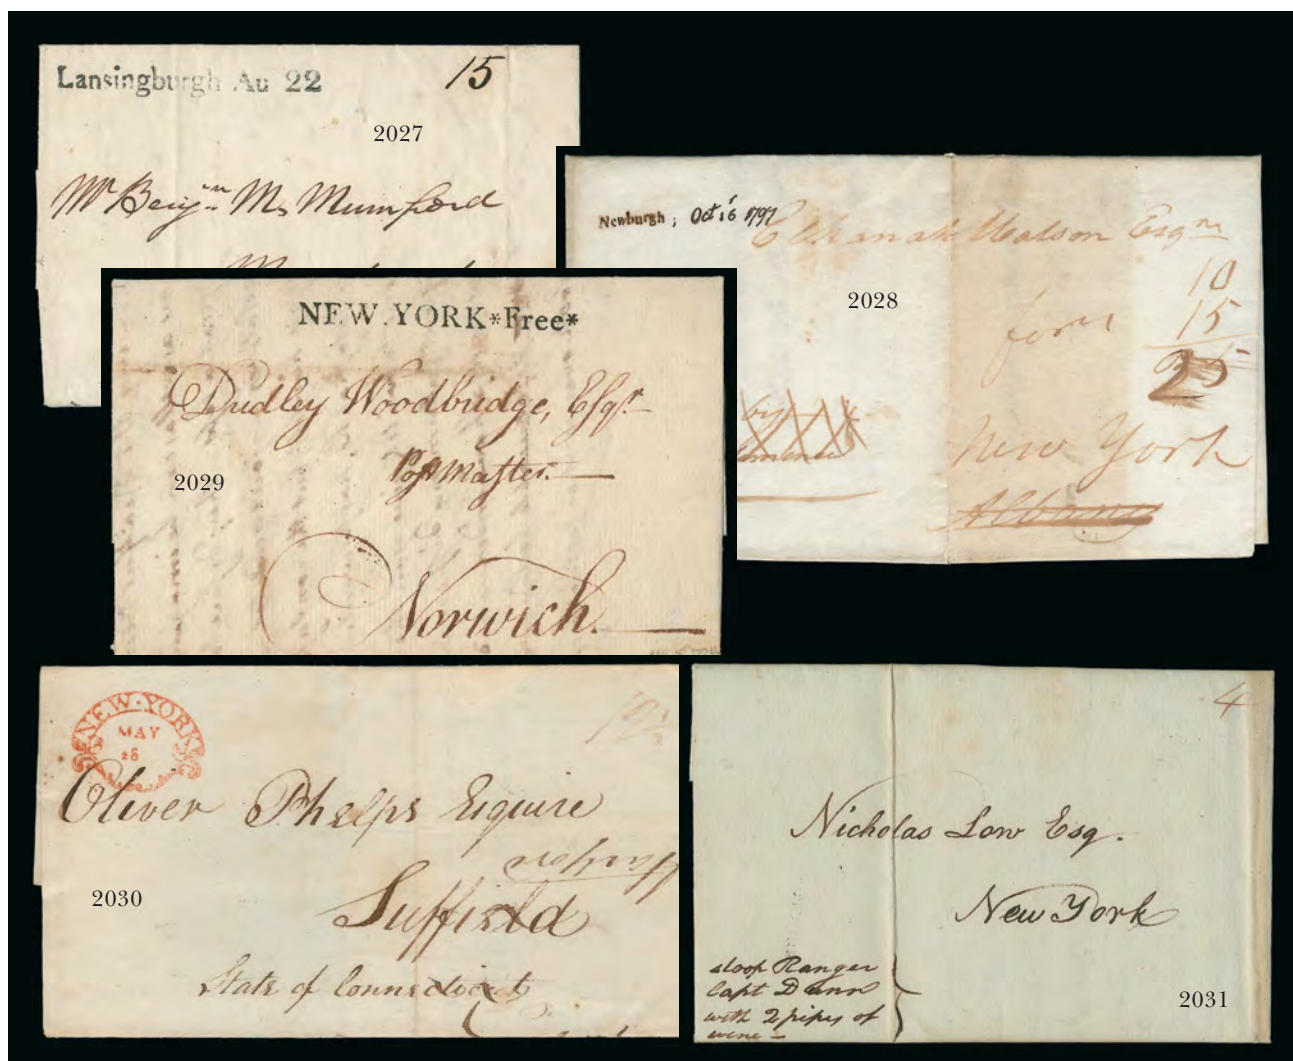 Lansingburgh Au 22
15
2027
Mr Benjn M. Mumford
Newburgh; Oct 16 1797
Elkanah Watson Esqre
10
15
25
2028
New York
Albany
NEW.YORK*Free*
Dudley Woodbridge, Esqr.
PostMaster.
2029
Norwich.
NEW-YORK
MAY
28
Oliver Phelps Esquire
2030
Suffield
State of Connecticut
4
Nicholas Low Esq.
New York
sloop Ranger
Capt Dunn
with 2 pipes of
wine -
2031